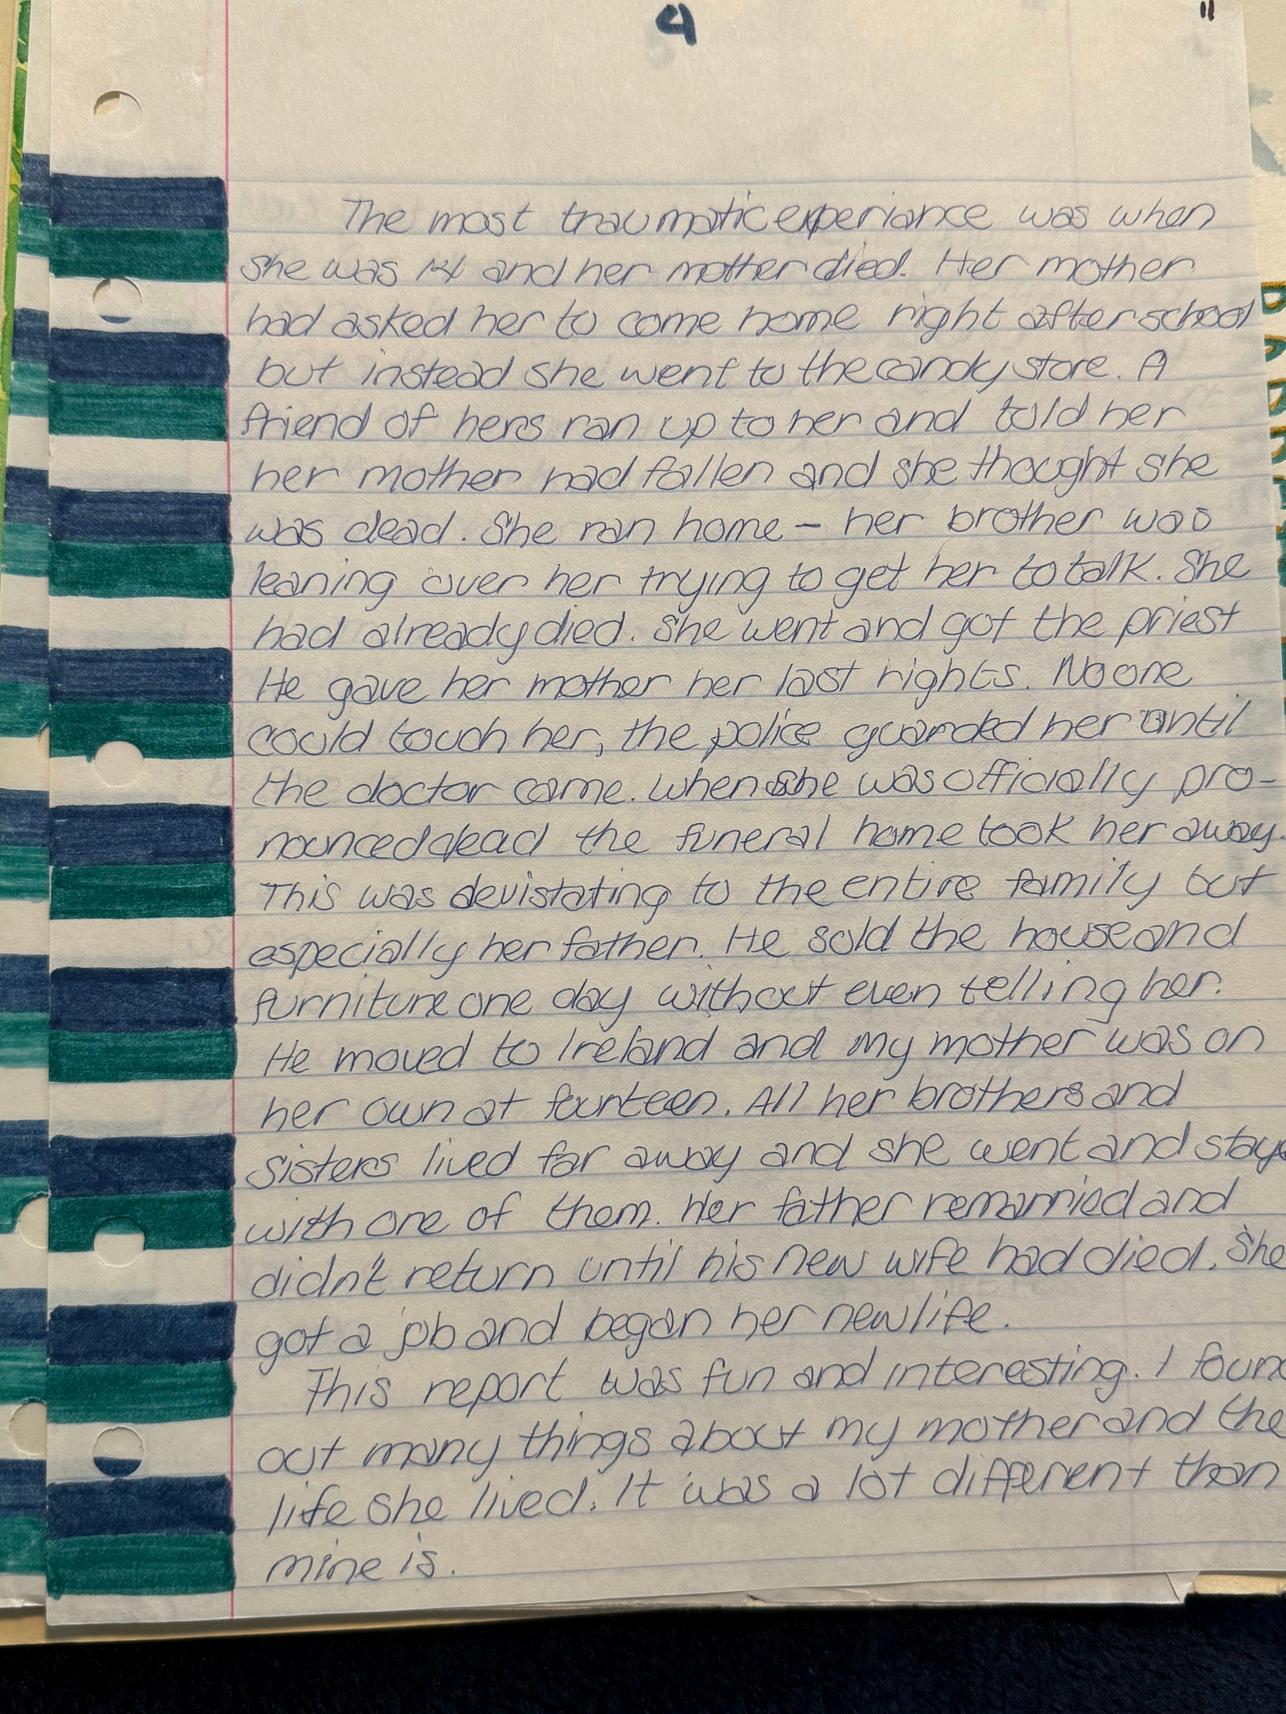 4
11
The most traumatic experiance was when
she was 14 and her mother died. Her mother
had asked her to come home right after school
but instead she went to the candy store. A
friend of hers ran up to her and told her
her mother had fallen and she thought she
was dead. She ran home – her brother was
leaning over her trying to get her to talk. She
had already died. She went and got the priest
He gave her mother her last rights. No one
could touch her, the police guarded her until
the doctor came. When she was officially pro-
nounced dead the funeral home took her away.
This was devistating to the entire family but
especially her father. He sold the house and
furniture one day without even telling her.
He moved to Ireland and my mother was on
her own at fourteen. All her brothers and
sisters lived far away and she went and stays
with one of them. Her father remarried and
didn't return until his new wife had died. She
got a job and began her new life.
This report was fun and interesting. I found
out many things about my mother and the
life she lived. It was a lot different than
mine is.